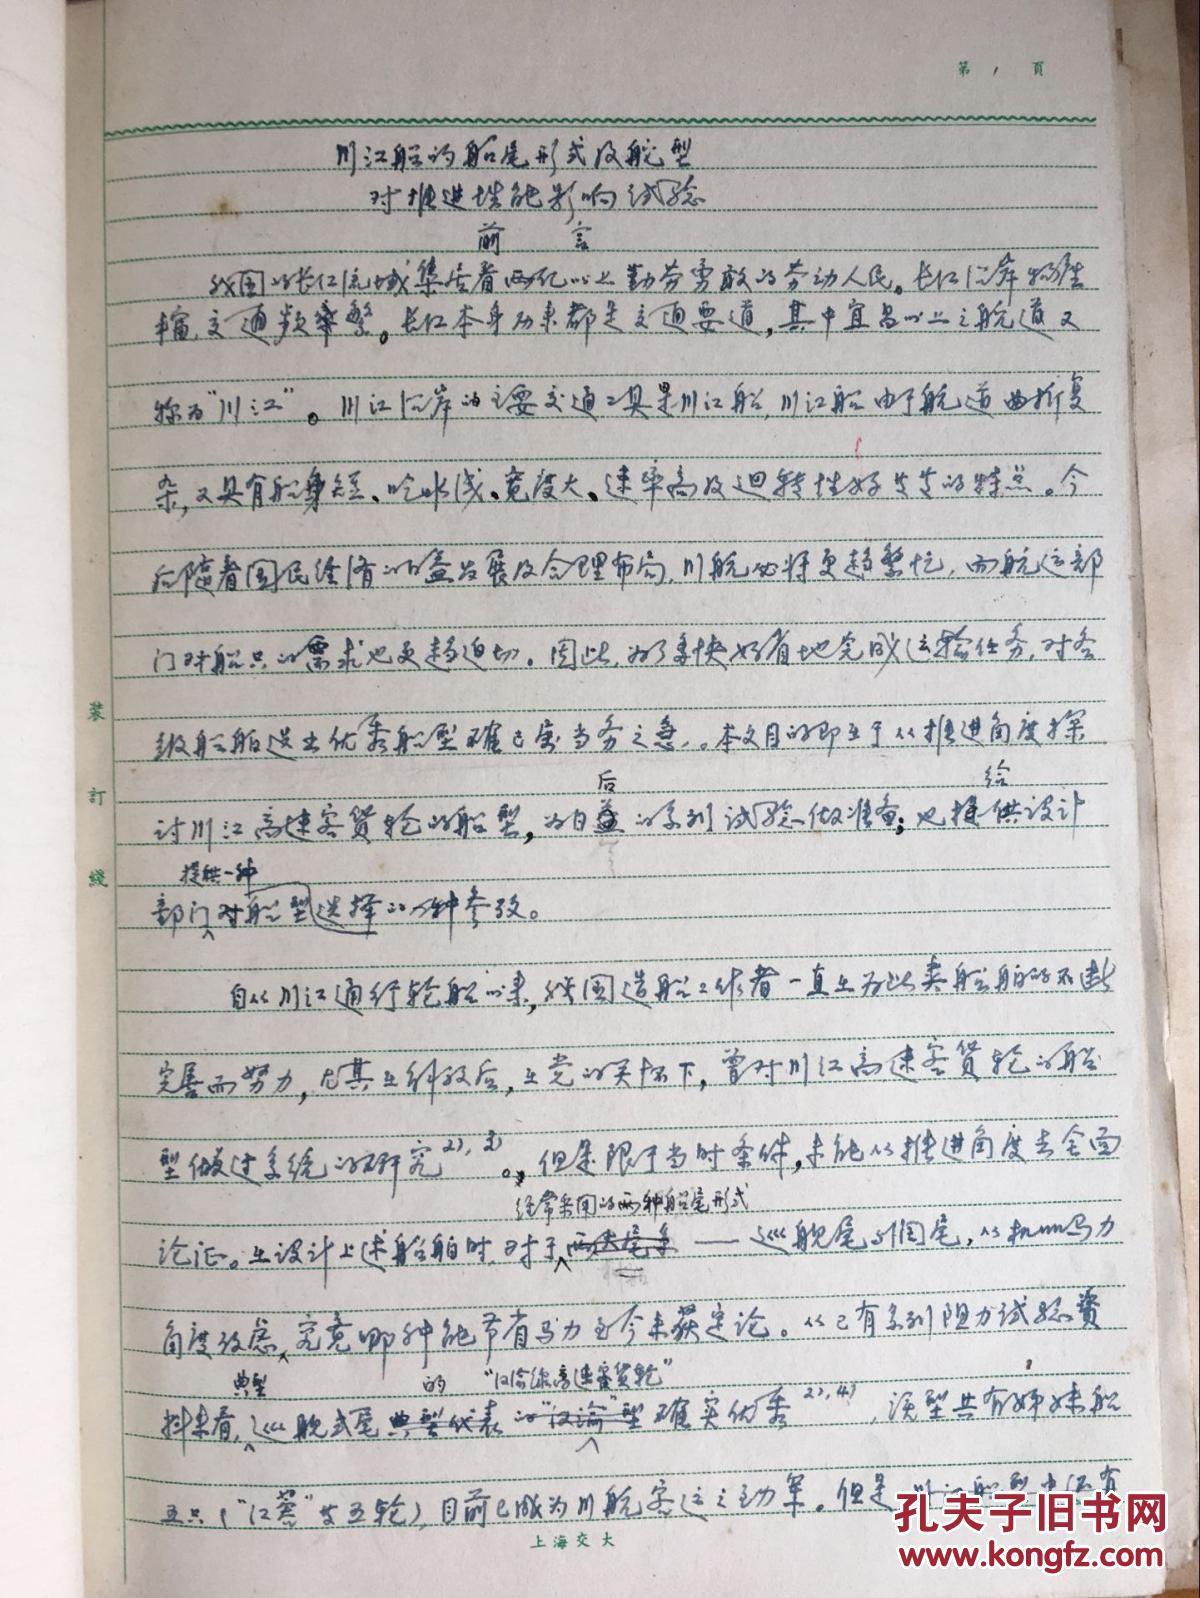 第 1 頁
川江船的船尾形式及舵型
对推进性能影响试验
前 言
我国的长江流域集居着两亿以上勤劳勇敢的劳动人民。长江沿岸物产
丰富,交通频繁。长江本身历来都是交通要道,其中宜昌以上之航道又
称为"川江"。川江沿岸的主要交通工具是川江船,川江船由于航道曲折复
杂,又具有船身短、吃水浅、宽度大、速率高及迴转性好等等的特点。今
后随着国民经济的益发展及合理布局,川航必将更趋繁忙,而航运部
门对船只的需求也更趋迫切。因此,为了多快好省地完成运输任务,对各
级船舶选出优秀船型确已实当务之急。本文目的即在于从推进角度探
后
给
讨川江高速客货轮的船型,为日益的系列试验做准备;也提供设计
提供一种
部门对船型选择的一种参考。
自从川江通行轮船以来,我国造船工作者一直在为此类船舶的不断
完善而努力,尤其在解放后,在党的关怀下,曾对川江高速客货轮的船
型做过系统的研究2),3)。但是限于当时条件,未能从推进角度去全面
经常采用的两种船尾形式
论证。在设计上述船舶时,对于 —— 巡舰尾与隧尾,从 马力
角度考虑,究竟哪种能节省马力至今未获定论。从已有系列阻力试验资
典型 的 "汉渝线高速客货轮"
料来看,巡舰式尾典型代表的"汉渝"型确实优秀2),4),该型共有姊妹船
五只("江蓉"等五轮),目前已成为川航客运之主力军。但是
装 訂 綫
上海交大
孔夫子旧书网
www.kongfz.com